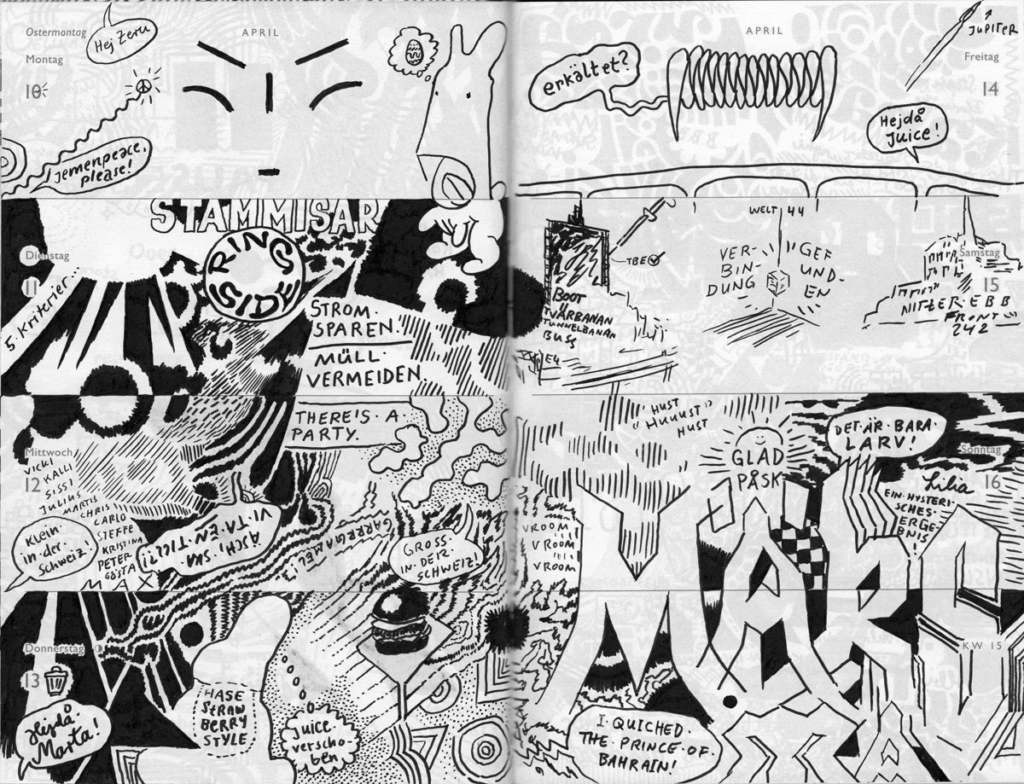 Ostermontag
Hej Zeru
APRIL
Montag
10
Jemenpeace,
please!
STAMMISAR
RINGS
Dienstag
11
5. Kriterier
STROM.
SPAREN!
MÜLL.
VERMEIDEN
THERE'S.A
PARTY.
Mittwoch
12
VICKI
KALLI
SISSI
JULIUS
MARTIS
CHRIS
CARLO
STEFFE
KRISTINA
PETER
GÖSTA
MAX
Klein.
in.der.
Schweiz.
ASCH! SKA
VI.TA.EN.TILL?!
GARRGAMEL?
GROSS.
IN.DER.
SCHWEIZ!
Donnerstag
13
Hejdå
Marta!
HASE
STRAW
BERRY
STYLE
Juice
verscho
ben
APRIL
JUPITER
Freitag
14
erkältet?
Hejdå
Juice!
WELT 44
TBE
VER
BIN-
DUNG
GEF
UND-
EN
Samstag
15
BOOT
TVÄRBANAN
TUNNELBANAN
BUSS
E4
NITZER.EBB
FRONT
242
"HUST
HUUUST"
HUST
GLAD
PÅSK
DET.ÄR.BARA.
LARV!
Sonntag
16
Lilia
EIN.HYSTERI-
SCHES.
ERGE
BNIS
VROOM
VROOM
VROOM
VROOM
KW 15
I.QUICHED.
THE.PRINCE.OF.
BAHRAIN!